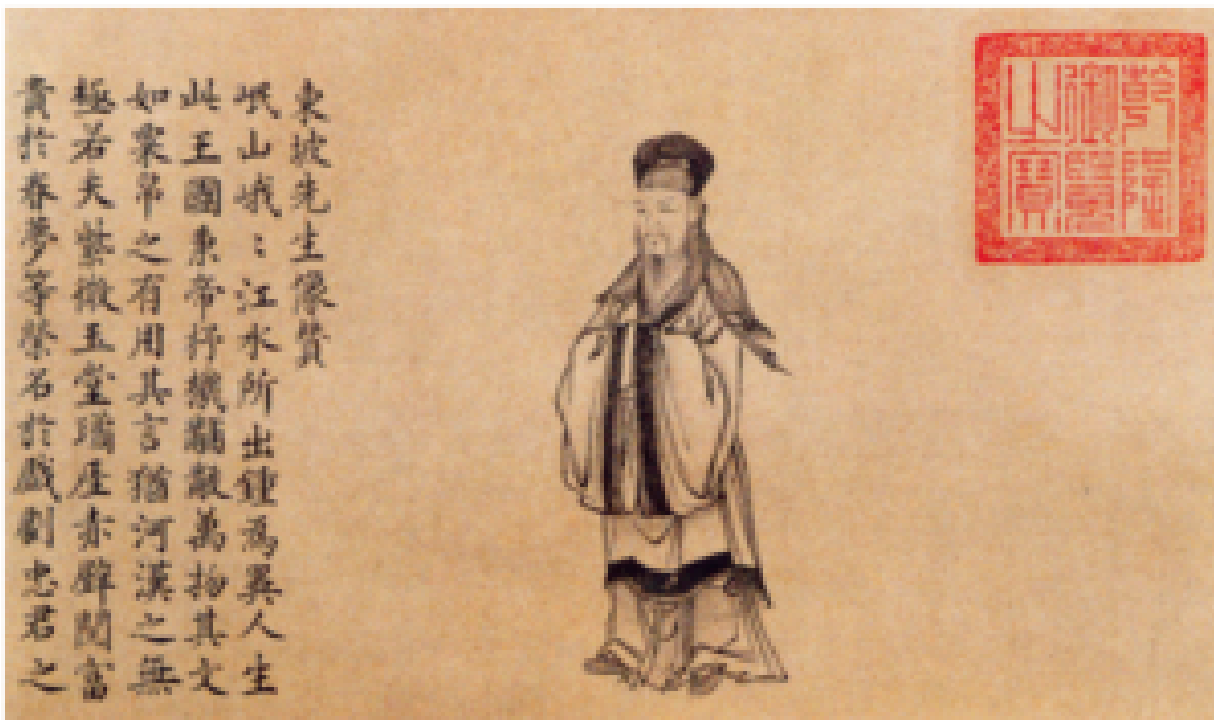 乾隆御覽之寶
東坡先生像贊
岷山峨〻江水所出鍾為異人生
此王國秉帝杼機黼黻萬物其文
如粟帛之有用其言猶河漢之無
極若夫紫微玉堂瓊崖赤壁閱富
貴於春夢等榮名於戲劇忠君之